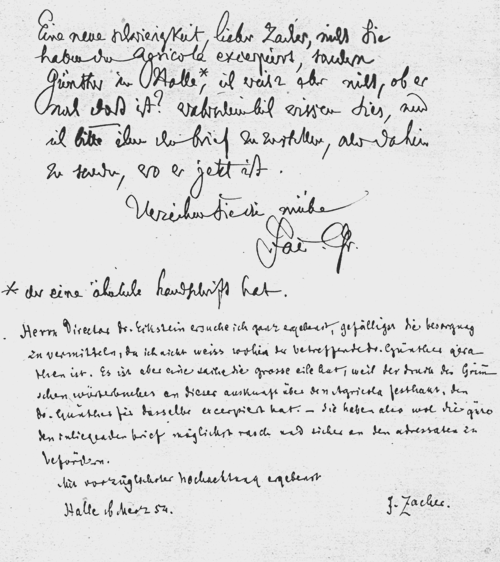 Eine neue schwierigkeit, lieber Zacher, nicht Sie
haben den Agricola excerpiert, sondern
Günther in Halle*, ich weisz aber nicht, ob er
noch dort ist? wahrscheinlich wissen Sies, und
ich bitte ihm den brief zu zustellen, oder dahin
zu senden, wo er jetzt ist.
Verzeihen Sie die mühe
Jac. Gr.
* der eine ähnliche handschrift hat.
Herrn Director Dr. Eckstein ersuche ich ganz ergebenst, gefälligst die besorgung
zu vermitteln, da ich nicht weiss wohin der betreffende dr. Günther gera-
then ist. Es ist aber eine sache die grosse eile hat, weil der druck des Grimm-
schen wörterbuches an dieser auskunft über den Agricola festhängt, den
Dr. Günther für dasselbe excerpiert hat. – Sie haben also wol die güte
den inliegenden brief möglichst rasch und sicher an den adressaten zu
befördern.
Mit vorzüglichster hochachtung ergebenst
Halle 16 März 54.
J. Zacher.